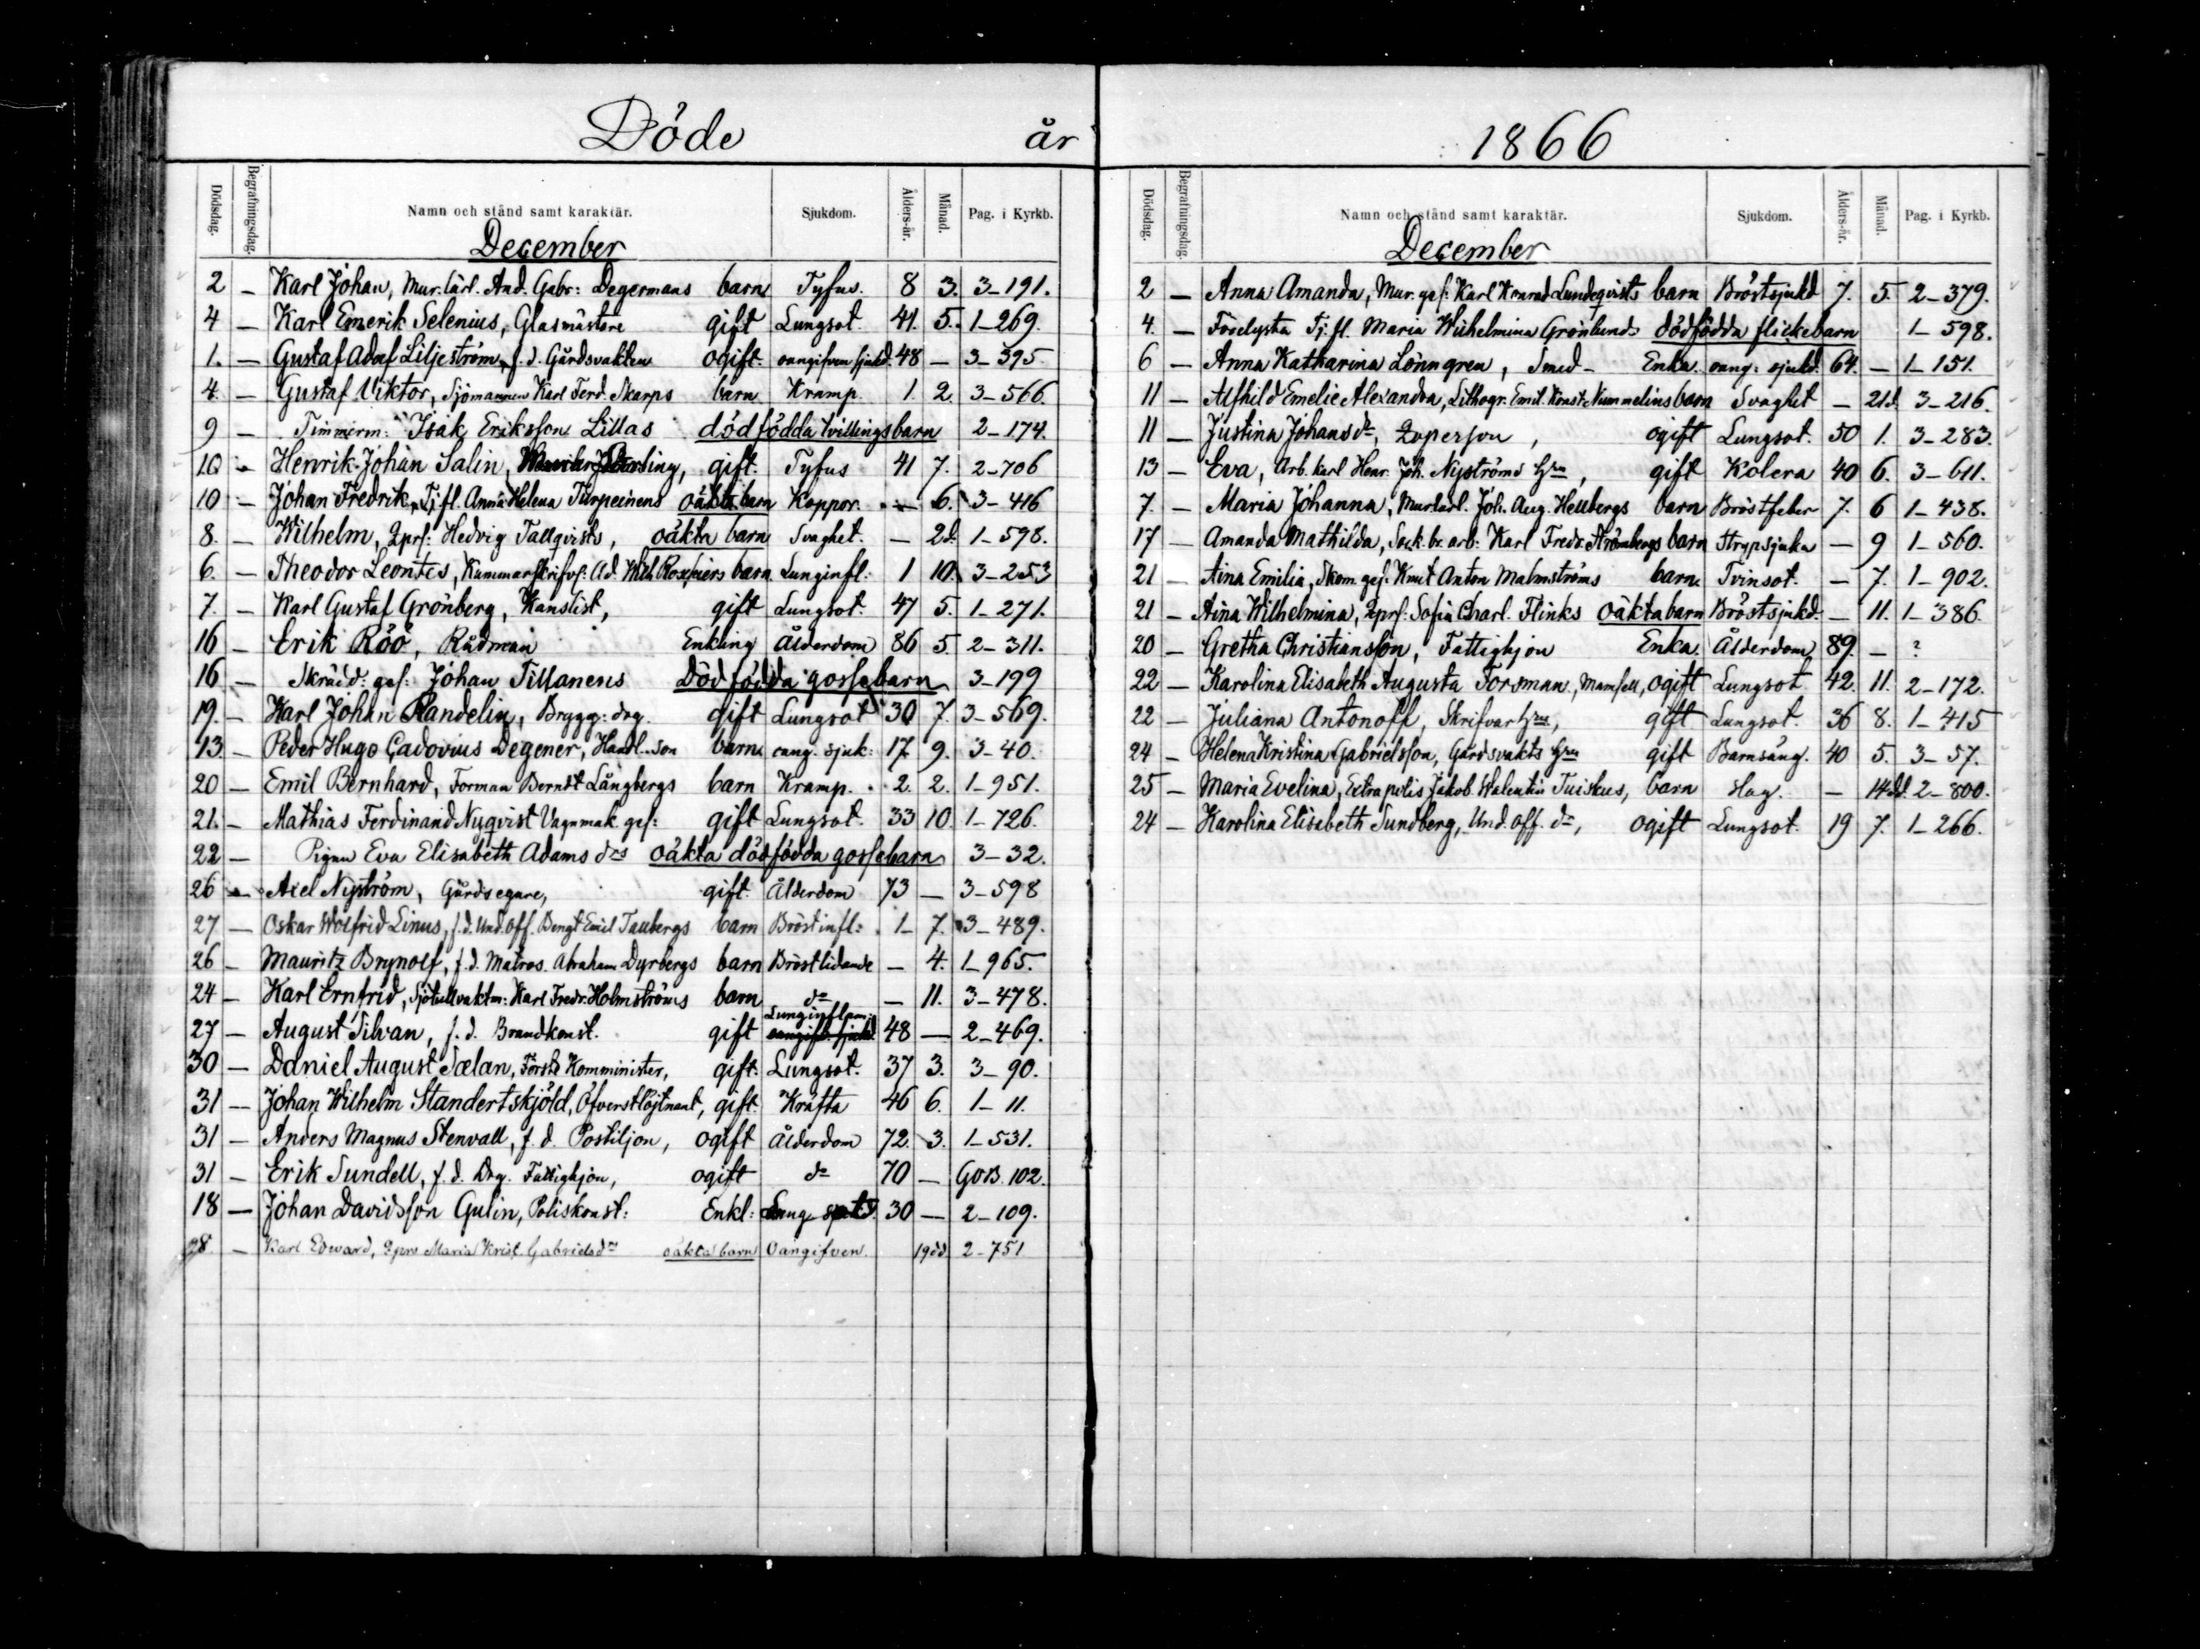 Döde år
Dödsdag. Begrafningsdag. Namn och stånd samt karaktär. Sjukdom. Ålders-år. Månad. Pag. i Kyrkb.
December
2 — Karl Johan, Mur. lärl. And. Gabr: Degermans barn Tyfus. 8 3. 3–191.
4 — Karl Emerik Selenius, Glasmästare gift Lungsot. 41. 5. 1–269.
1. — Gustaf Adolf Liljeström, f. d. Gårdsvakten ogift. oangifven sjukd. 48 — 3–395
4. — Gustaf Viktor, Sjömannen Karl Ferd. Skarps barn Kramp 1. 2. 3–566.
9 — Timmerm: Isak Eriksson Lillas dödfödda tvillingsbarn 2–174.
10 — Henrik Johan Salin, gift. Tyfus 41 7. 2–706
10 — Johan Fredrik, Tj. fl. Anna Helena Turpeinens oäkta barn Koppor. — 6. 3–416
8. — Wilhelm, Qprs: Hedvig Tallqvists, oäkta barn Svaghet. — 2d. 1–598.
6. — Theodor Leontes, Kammarskrifvs: Ad. Wilh. barn Lunginfl: 1 10. 3–253
7. — Karl Gustaf Grönberg, Kanslist, gift Lungsot. 47 5. 1–271.
16 — Erik Röö, Rådman Enkling Ålderdom 86 5 2–311.
16 — Skrädd: ges: Johan Tillanens Dödfödda gossebarn 3–199
19. — Karl Johan Randelin, Brygg: drg. gift Lungsot 30 7. 3–569.
13 — Peder Hugo Cadovius Degener, Handl. son barn oang. sjuk: 17 9. 3–40.
20 — Emil Bernhard, Forman Berndt Långbergs barn Kramp. 2. 2. 1–951.
21. — Mathias Ferdinand Nyqvist Vagnmak. ges: gift Lungsot. 33 10. 1–726.
22 — Pigan Eva Elisabeth Adams drs oäkta dödfödda gossebarn 3–32.
26 — Axel Nyström, Gårdsegare, gift. Ålderdom 73 — 3–598
27 — Oskar Wolfrid Linus, f. d. Und. off. Bengt Emil Taubergs barn Bröstinfl: 1– 7. 3–489.
26 — Mauritz Brynolf, f. d. Matros. Abraham Dyrbergs barn Bröstlidande — 4. 1–965.
24 — Karl Ernfrid, Sjötullvaktm: Karl Fredr. Holmströms barn do — 11. 3–478.
27 — August Silvan, f. d. Brandkonst. gift Lunginflam: oangifv. sjukd. 48 — 2–469.
30 — Daniel August Sælan, Förste Komminister, gift. Lungsot. 37 3. 3–90.
31 — Johan Wilhelm Standertskjöld, Öfverstlöjtnant, gift. Kräfta 46 6. 1–11.
31 — Anders Magnus Stenvall, f. d. Postiljon, ogift Ålderdom 72. 3. 1–531.
31 — Erik Sundell, f. d. Drg. Fattighjon, ogift do 70 — GOB. 102.
18 — Johan Davidsson Gulin, Poliskonst: Enkl: 30 — 2–109.
28. — Karl Edward, Qprs Maria Krist. Gabrielsdrs oäkta barn Oangifven. 19dd. 2–751
1866
Dödsdag. Begrafningsdag. Namn och stånd samt karaktär. Sjukdom. Ålders-år. Månad. Pag. i Kyrkb.
December
2 — Anna Amanda, Mur. ges: Karl Konrad Lundeqvists barn Bröstsjukd 7. 5. 2–379.
4. — Förelysta Tj. fl. Maria Wilhelmina Grönlunds dödfödda flickebarn 1–598.
6 — Anna Katharina Lönngren, Smed– Enka. oang: sjukd. 64. — 1–151.
11 — Alfhild Emelie Alexandra, Lithogr. Emil Konst. Nummelins barn Svaghet — 21d. 3–216.
11 — Justina Johansdr, Qvperson, ogift Lungsot. 50 1. 3–283.
13 — Eva, Arb. karl Henr. Joh. Nyströms Hru, gift Kolera 40 6. 3–611.
7. — Maria Johanna, Murlärl. Joh. Aug. Hellbergs barn Bröstfeber 7. 6 1–438.
17 — Amanda Mathilda, Sock. br. arb: Karl Fredr. Strömbergs barn Strypsjuka — 9 1–560.
21 — Aina Emilia, Skom. ges: Knut Anton Malmströms barn. Tvinsot. — 7. 1–902.
21 — Aina Wilhelmina, Qprs: Sofia Charl. Flinks oäkta barn Bröstsjukd. — 11. 1–386.
20 — Gretha Christiansson, Fattighjon Enka. Ålderdom 89. — ?
22 — Karolina Elisabeth Augusta Forsman, Mamsell, ogift Lungsot 42. 11. 2–172.
22 — Juliana Antonoff, Skrifvar Hru, gift Lungsot. 36 8. 1–415
24 — Helena Kristina Gabrielsson, Gårdsvakts Hru gift Barnsäng. 40 5. 3–57.
25 — Maria Evelina, Extrapolis Jakob Walentin Tuiskus, barn Slag. — 14dd. 2–800.
24 — Karolina Elisabeth Sundberg, Und. off. dr, ogift Lungsot. 19 7. 1–266.